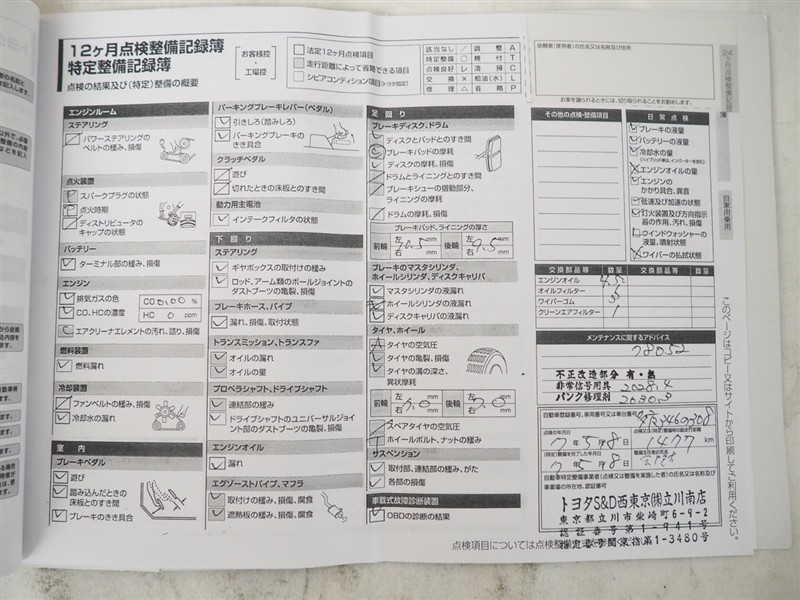 12ヶ月点検整備記録簿
特定整備記録簿
点検の結果及び(特定)整備の概要
お客様控
・
工場控
法定12ヶ月点検項目
走行距離によって省略できる項目
シビアコンディション項目(トヨタ指定)
該当なし ／ 調整 A
特定整備 ○ 締付 T
点検良好 レ 清掃 C
交換 × 給油(水) L
修理 △ 省略 P
依頼者(使用者)の氏名又は名称及び住所
お車を譲られるときには、切り取られることをお勧めします。
エンジンルーム
ステアリング
パワーステアリングの
ベルトの緩み、損傷
点火装置
スパークプラグの状態
点火時期
ディストリビュータの
キャップの状態
バッテリー
ターミナル部の緩み、損傷
エンジン
排気ガスの色
CO、HCの濃度
CO 0.00 %
HC 0 ppm
エアクリーナエレメントの汚れ、詰り、損傷
燃料装置
燃料漏れ
冷却装置
ファンベルトの緩み、損傷
冷却水の漏れ
室内
ブレーキペダル
遊び
踏み込んだときの
床板とのすき間
ブレーキのきき具合
パーキングブレーキレバー(ペダル)
引きしろ(踏みしろ)
パーキングブレーキの
きき具合
クラッチペダル
遊び
切れたときの床板とのすき間
動力用主電池
インテークフィルタの状態
下回り
ステアリング
ギヤボックスの取付けの緩み
ロッド、アーム類のボールジョイントの
ダストブーツの亀裂、損傷
ブレーキホース、パイプ
漏れ、損傷、取付状態
トランスミッション、トランスファ
オイルの漏れ
オイルの量
プロペラシャフト、ドライブシャフト
連結部の緩み
ドライブシャフトのユニバーサルジョイ
ント部のダストブーツの亀裂、損傷
エンジンオイル
漏れ
エグゾーストパイプ、マフラ
取付けの緩み、損傷、腐食
遮熱板の緩み、損傷、腐食
足回り
ブレーキディスク、ドラム
ディスクとパッドとのすき間
ブレーキパッドの摩耗
ディスクの摩耗、損傷
ドラムとライニングとのすき間
ブレーキシューの摺動部分、
ライニングの摩耗
ドラムの摩耗、損傷
ブレーキパッド、ライニングの厚さ
前輪 左右 10.5 mm 後輪 左右 9.5 mm
ブレーキのマスタシリンダ、
ホイールシリンダ、ディスクキャリパ
マスタシリンダの液漏れ
ホイールシリンダの液漏れ
ディスクキャリパの液漏れ
タイヤ、ホイール
タイヤの空気圧
タイヤの亀裂、損傷
タイヤの溝の深さ、
異状摩耗
前輪 左右 7.0 mm 後輪 左右 7.0 mm
スペアタイヤの空気圧
ホイールボルト、ナットの緩み
サスペンション
取付部、連結部の緩み、がた
各部の損傷
車載式故障診断装置
OBDの診断の結果
その他の点検・整備項目
日常点検
ブレーキの液量
バッテリーの液量
冷却水の量
(ハイブリッド車は、インバーターを含む)
エンジンオイルの量
エンジンの
かかり具合、異音
低速及び加速の状態
灯火装置及び方向指示
器の作用、汚れ、損傷
ウインドウォッシャーの
液量、噴射状態
ワイパーの払拭状態
交換部品等 数量 交換部品等 数量
エンジンオイル
オイルフィルター 1
ワイパーゴム 3
クリーンエアフィルター 1
メンテナンスに関するアドバイス
78052
不正改造部分 有・無
非常信号用具 2028.4
パンク修理剤 2030.3
自動車登録番号、車両番号又は車台番号
点検の年月日
7年5月8日
1477 km
7年5月8日
自動車特定整備事業者(点検又は整備を実施した者)の氏名又は名称及び
事業場の所在地、認証番号
トヨタS&D西東京㈱立川南店
東京都立川市柴崎町6-9-2
認証番号第1-941号
指定番号関東指第1-3480号
点検項目については点検整備
24ヶ月点検整備記録簿
自家用乗用
このページは、コピー又はサイトから印刷してご利用ください。